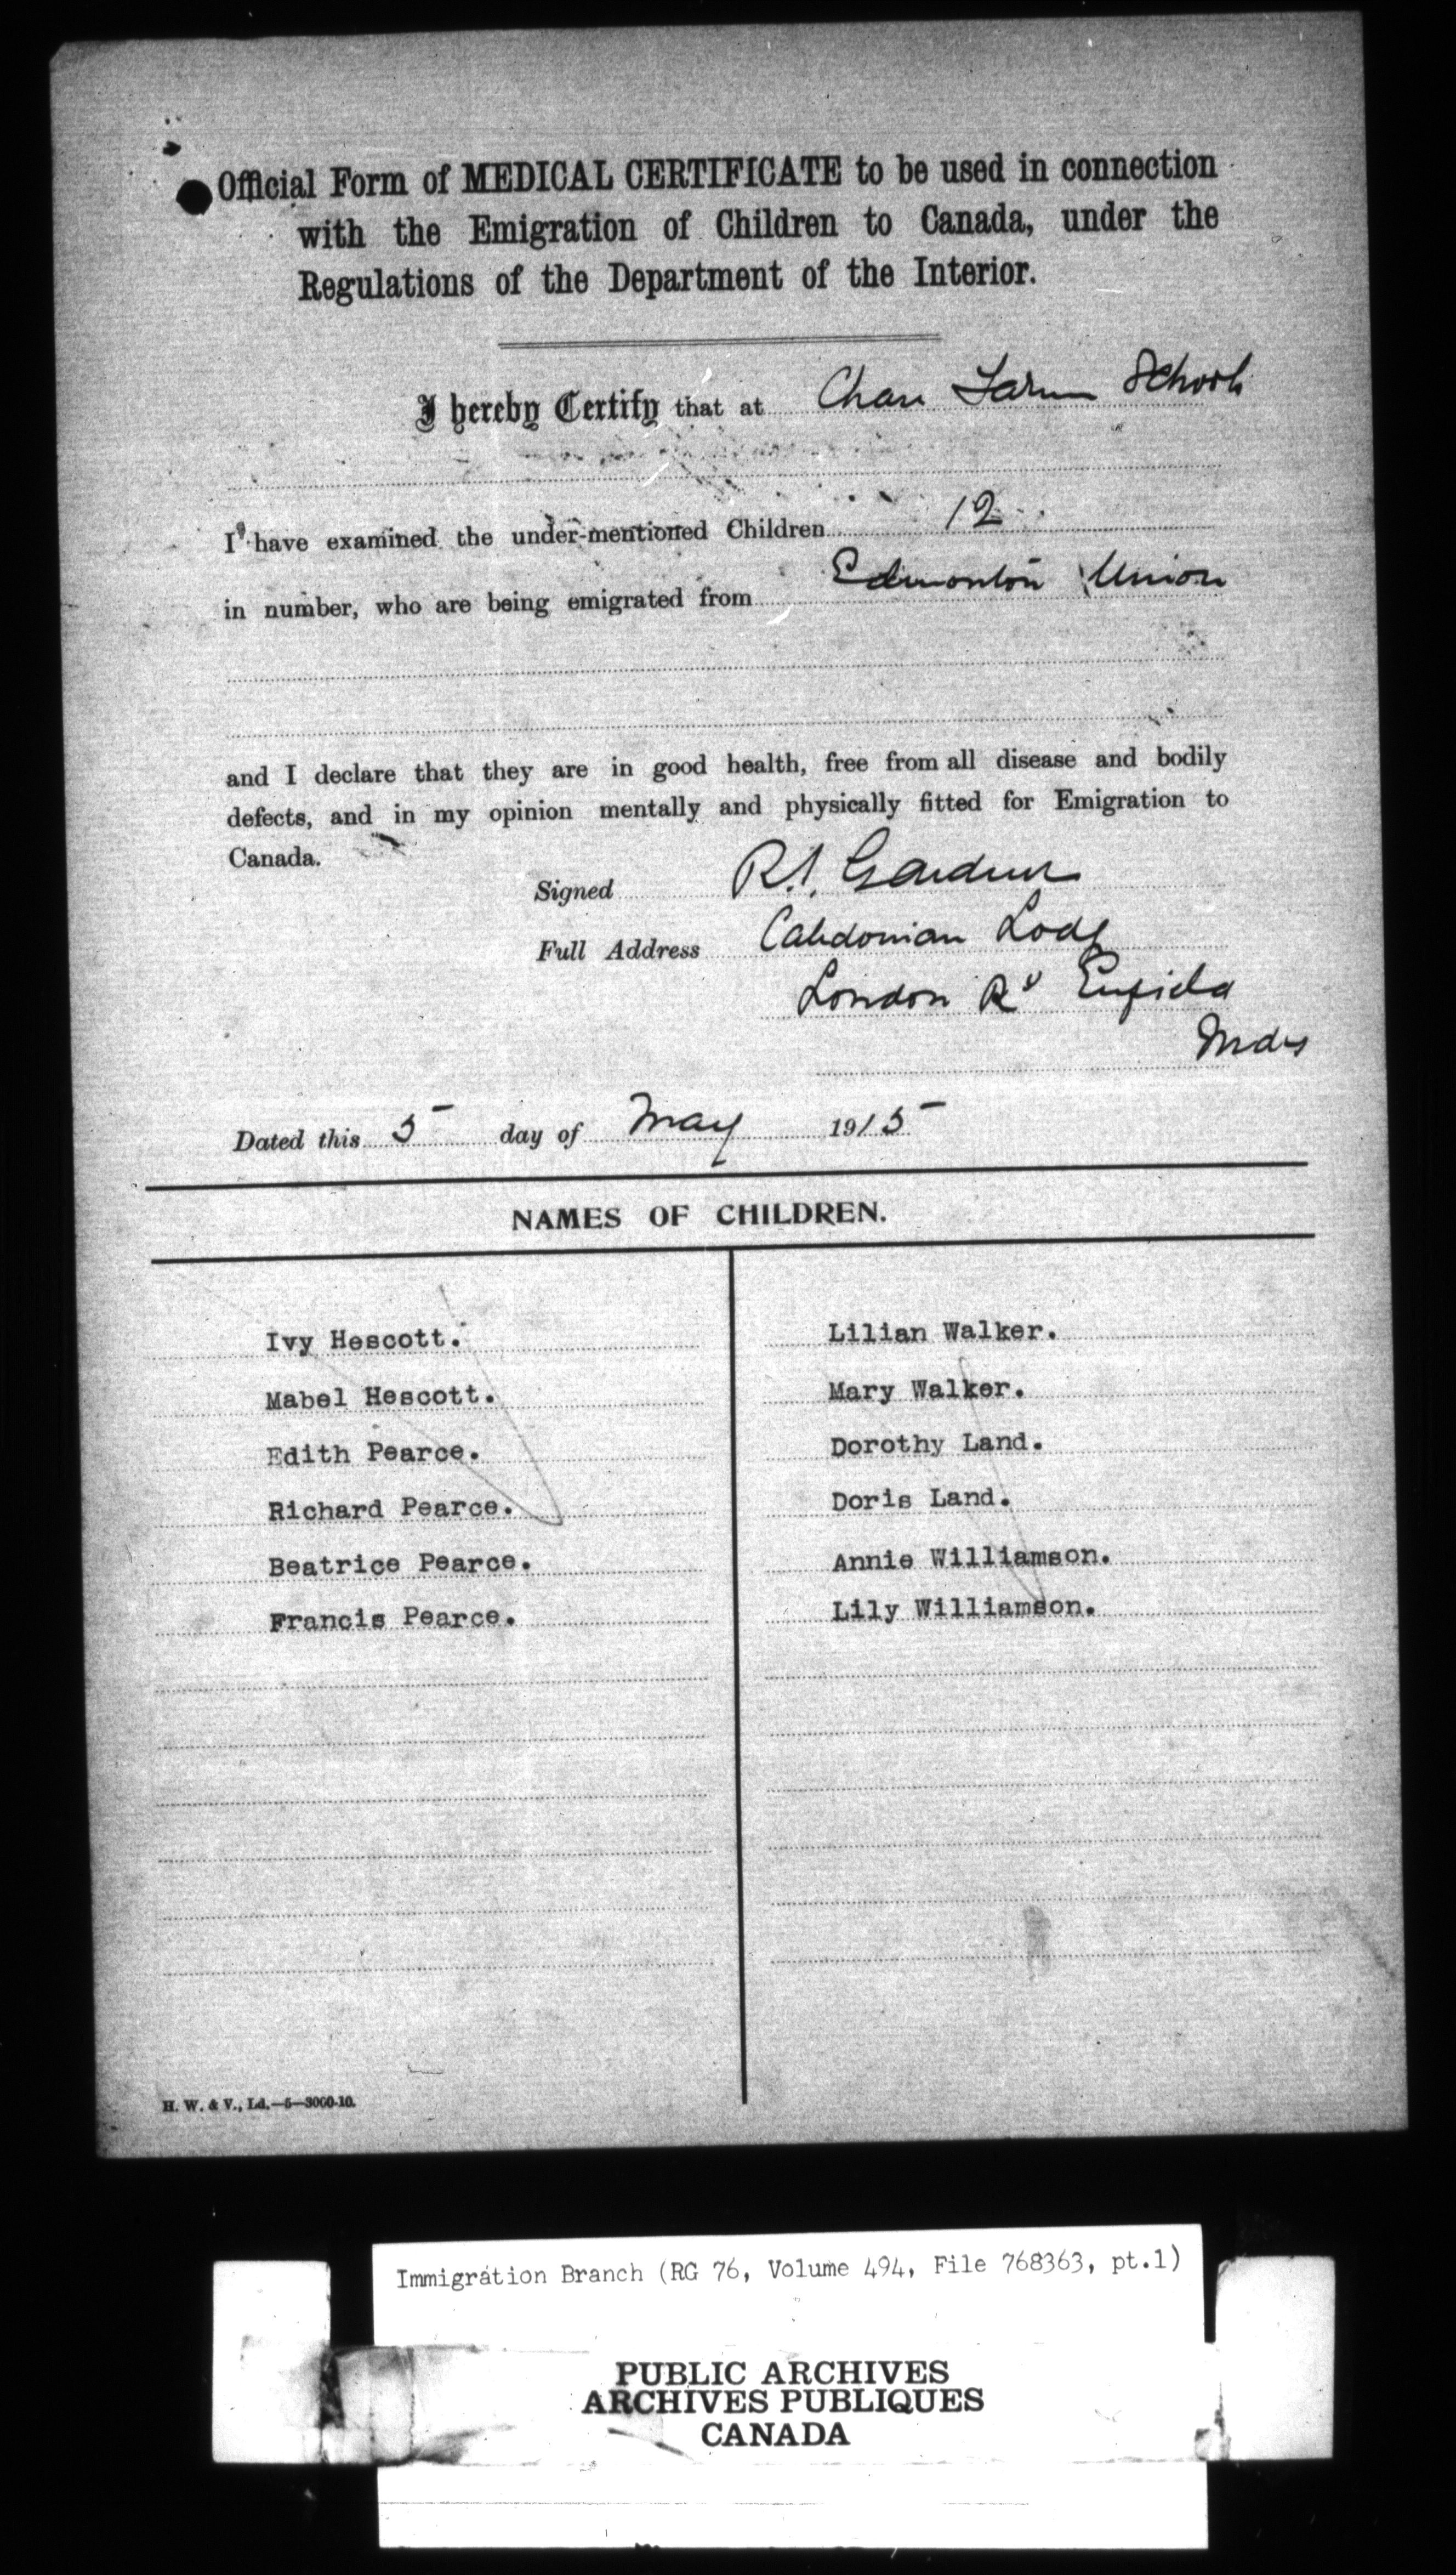 Official Form of MEDICAL CERTIFICATE to be used in connection
with the Emigration of Children to Canada, under the
Regulations of the Department of the Interior.
I hereby Certify that at Chase Farm Schools
I have examined the under-mentioned Children 12
in number, who are being emigrated from Edmonton Union
and I declare that they are in good health, free from all disease and bodily
defects, and in my opinion mentally and physically fitted for Emigration to
Canada.
Signed Gardner
Full Address Caledonian Lodge
London Rd Enfield
Mdx
Dated this 5 day of May 1915
NAMES OF CHILDREN.
Ivy Hescott.
Mabel Hescott.
Edith Pearce.
Richard Pearce.
Beatrice Pearce.
Francis Pearce.
Lilian Walker.
Mary Walker.
Dorothy Land.
Doris Land.
Annie Williamson.
Lily Williamson.
H. W. & V., Ld.—5—3000-10.
Immigration Branch (RG 76, Volume 494, File 768363, pt.1)
PUBLIC ARCHIVES
ARCHIVES PUBLIQUES
CANADA